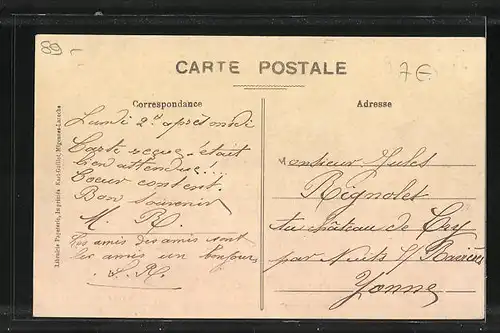 89 -
7€
CARTE POSTALE
Correspondance
Adresse
Lundi 2h après midi
Carte reçue était
bien attendue!..
Coeur content.
Bon souvenir
M. R.
Les amis des amis sont
les amis un bonjour
Monsieur Jules
Rignolet
au château de Cry
par Nuits s/ Ravières
Yonne
Librairie Papeterie, Imprimée
Migennes-Laroche